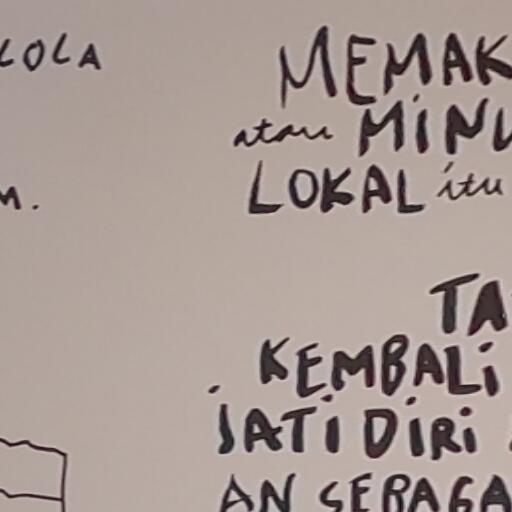 LOLA
M.
MEMAK
atau MINU
LOKAL itu
TA
KEMBALI
JATI DIRI
AN SEBAGA